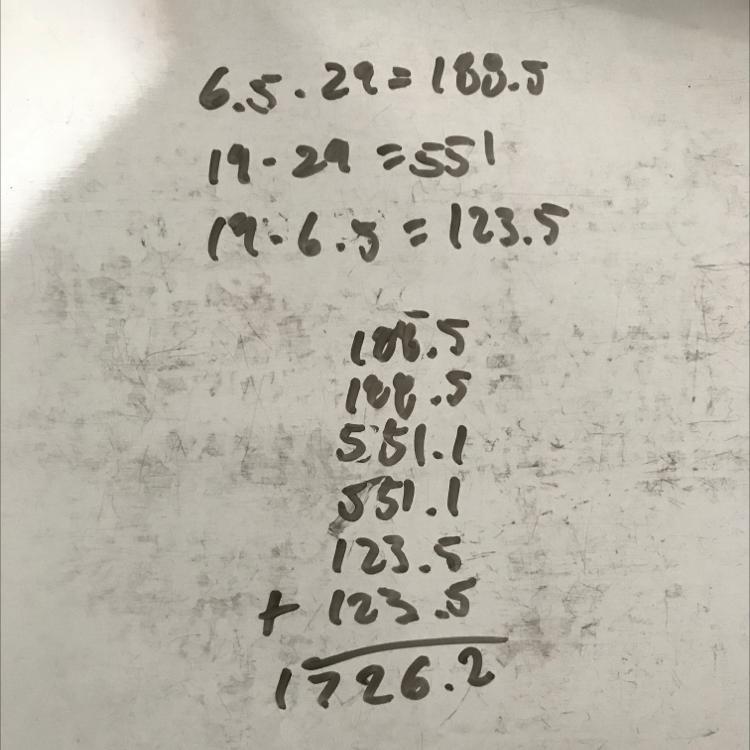 6.5 · 29 = 188.5
19 · 29 = 551
19 · 6.5 = 123.5
188.5
188.5
551.1
551.1
123.5
+ 123.5
1726.2